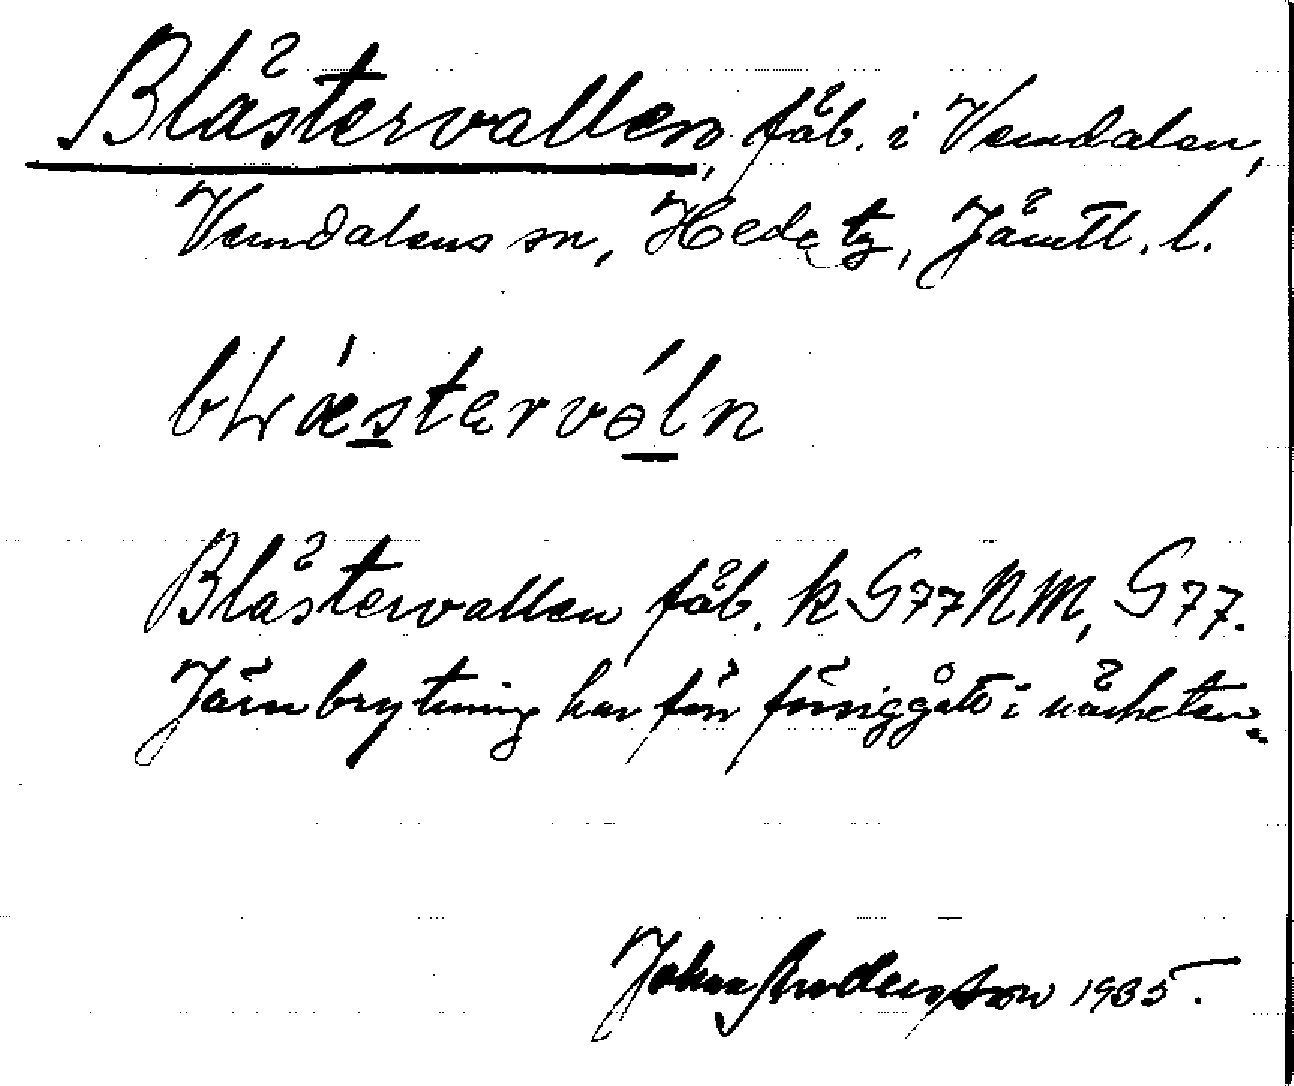 Blästervallen, fäb. i Vemdalen,
Vemdalens sn, Hede tg, Jämtl. l.
Blästervallen fäb. k G77NM, G77.
Järnbrytning har förr försiggått i närheten.
Johan Andersson 1935.